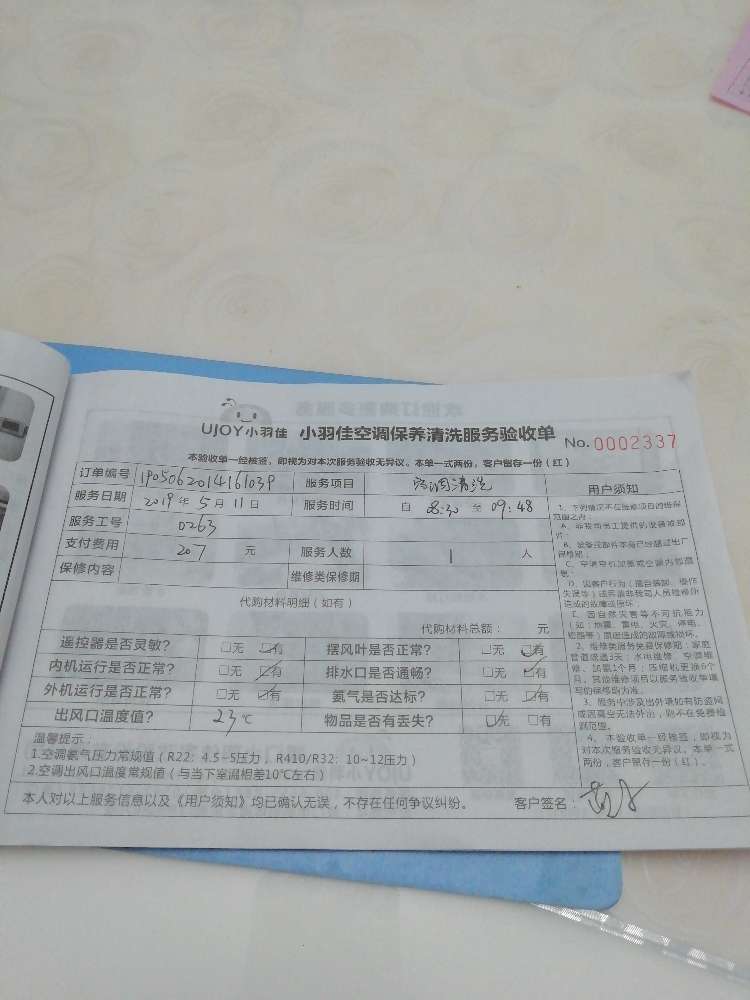 UJOY小羽佳 小羽佳空调保养清洗服务验收单 No. 0002337
本验收单一经核签,即视为对本次服务验收无异议。本单一式两份,客户留存一份(红)
订单编号 1905062014161039 服务项目 空调清洗
服务日期 2019年5月11日 服务时间 自 8:30 至 09:48
服务工号 0263
支付费用 207 元 服务人数 1 人
保修内容 维修类保修期
代购材料明细(如有)
代购材料总额: 元
遥控器是否灵敏? □无 □有 摆风叶是否正常? □无 □有
内机运行是否正常? □无 □有 排水口是否通畅? □无 □有
外机运行是否正常? □无 □有 氨气是否达标? □无 □有
出风口温度值? 23℃ 物品是否有丢失? □无 □有
温馨提示:
1.空调氨气压力常规值(R22:4.5~5压力,R410/R32:10~12压力)
2.空调出风口温度常规值(与当下室温相差10℃左右)
本人对以上服务信息以及《用户须知》均已确认无误,不存在任何争议纠纷。 客户签名:
用户须知
1、下列情况不在维修项目的维保
范围之内:
A、非我司员工提供的设备或部
件;
B、设备或部件本身已经超过出厂
保修期;
C、空调专机加氨或空调内部漏
氨;
D、因客户行为(擅自装卸、操作
失误等)或非派非我司人员维修所
造成的故障或损坏;
E、因自然灾害等不可抗拒力
(如:地震、雷电、火灾、停电、
赔偿等)原因造成的故障或损坏。
2、维修类服务免费保修期:家庭
管道疏通3天;水电维修、空调维
修、加氨1个月;压缩机更换6个
月。其他维修项目以服务验收单填
写的保修期为准。
3、服务中涉及出外墙如有防盗网
或因高空无法外出,则不在免费检
测范围。
4、本验收单一经核签,即视为
对本次服务验收无异议。本单一式
两份,客户留存一份(红)。